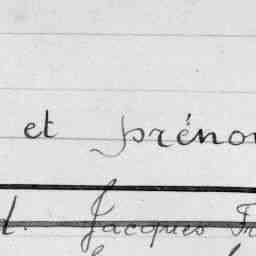 et prénom
l. Jacques Fr